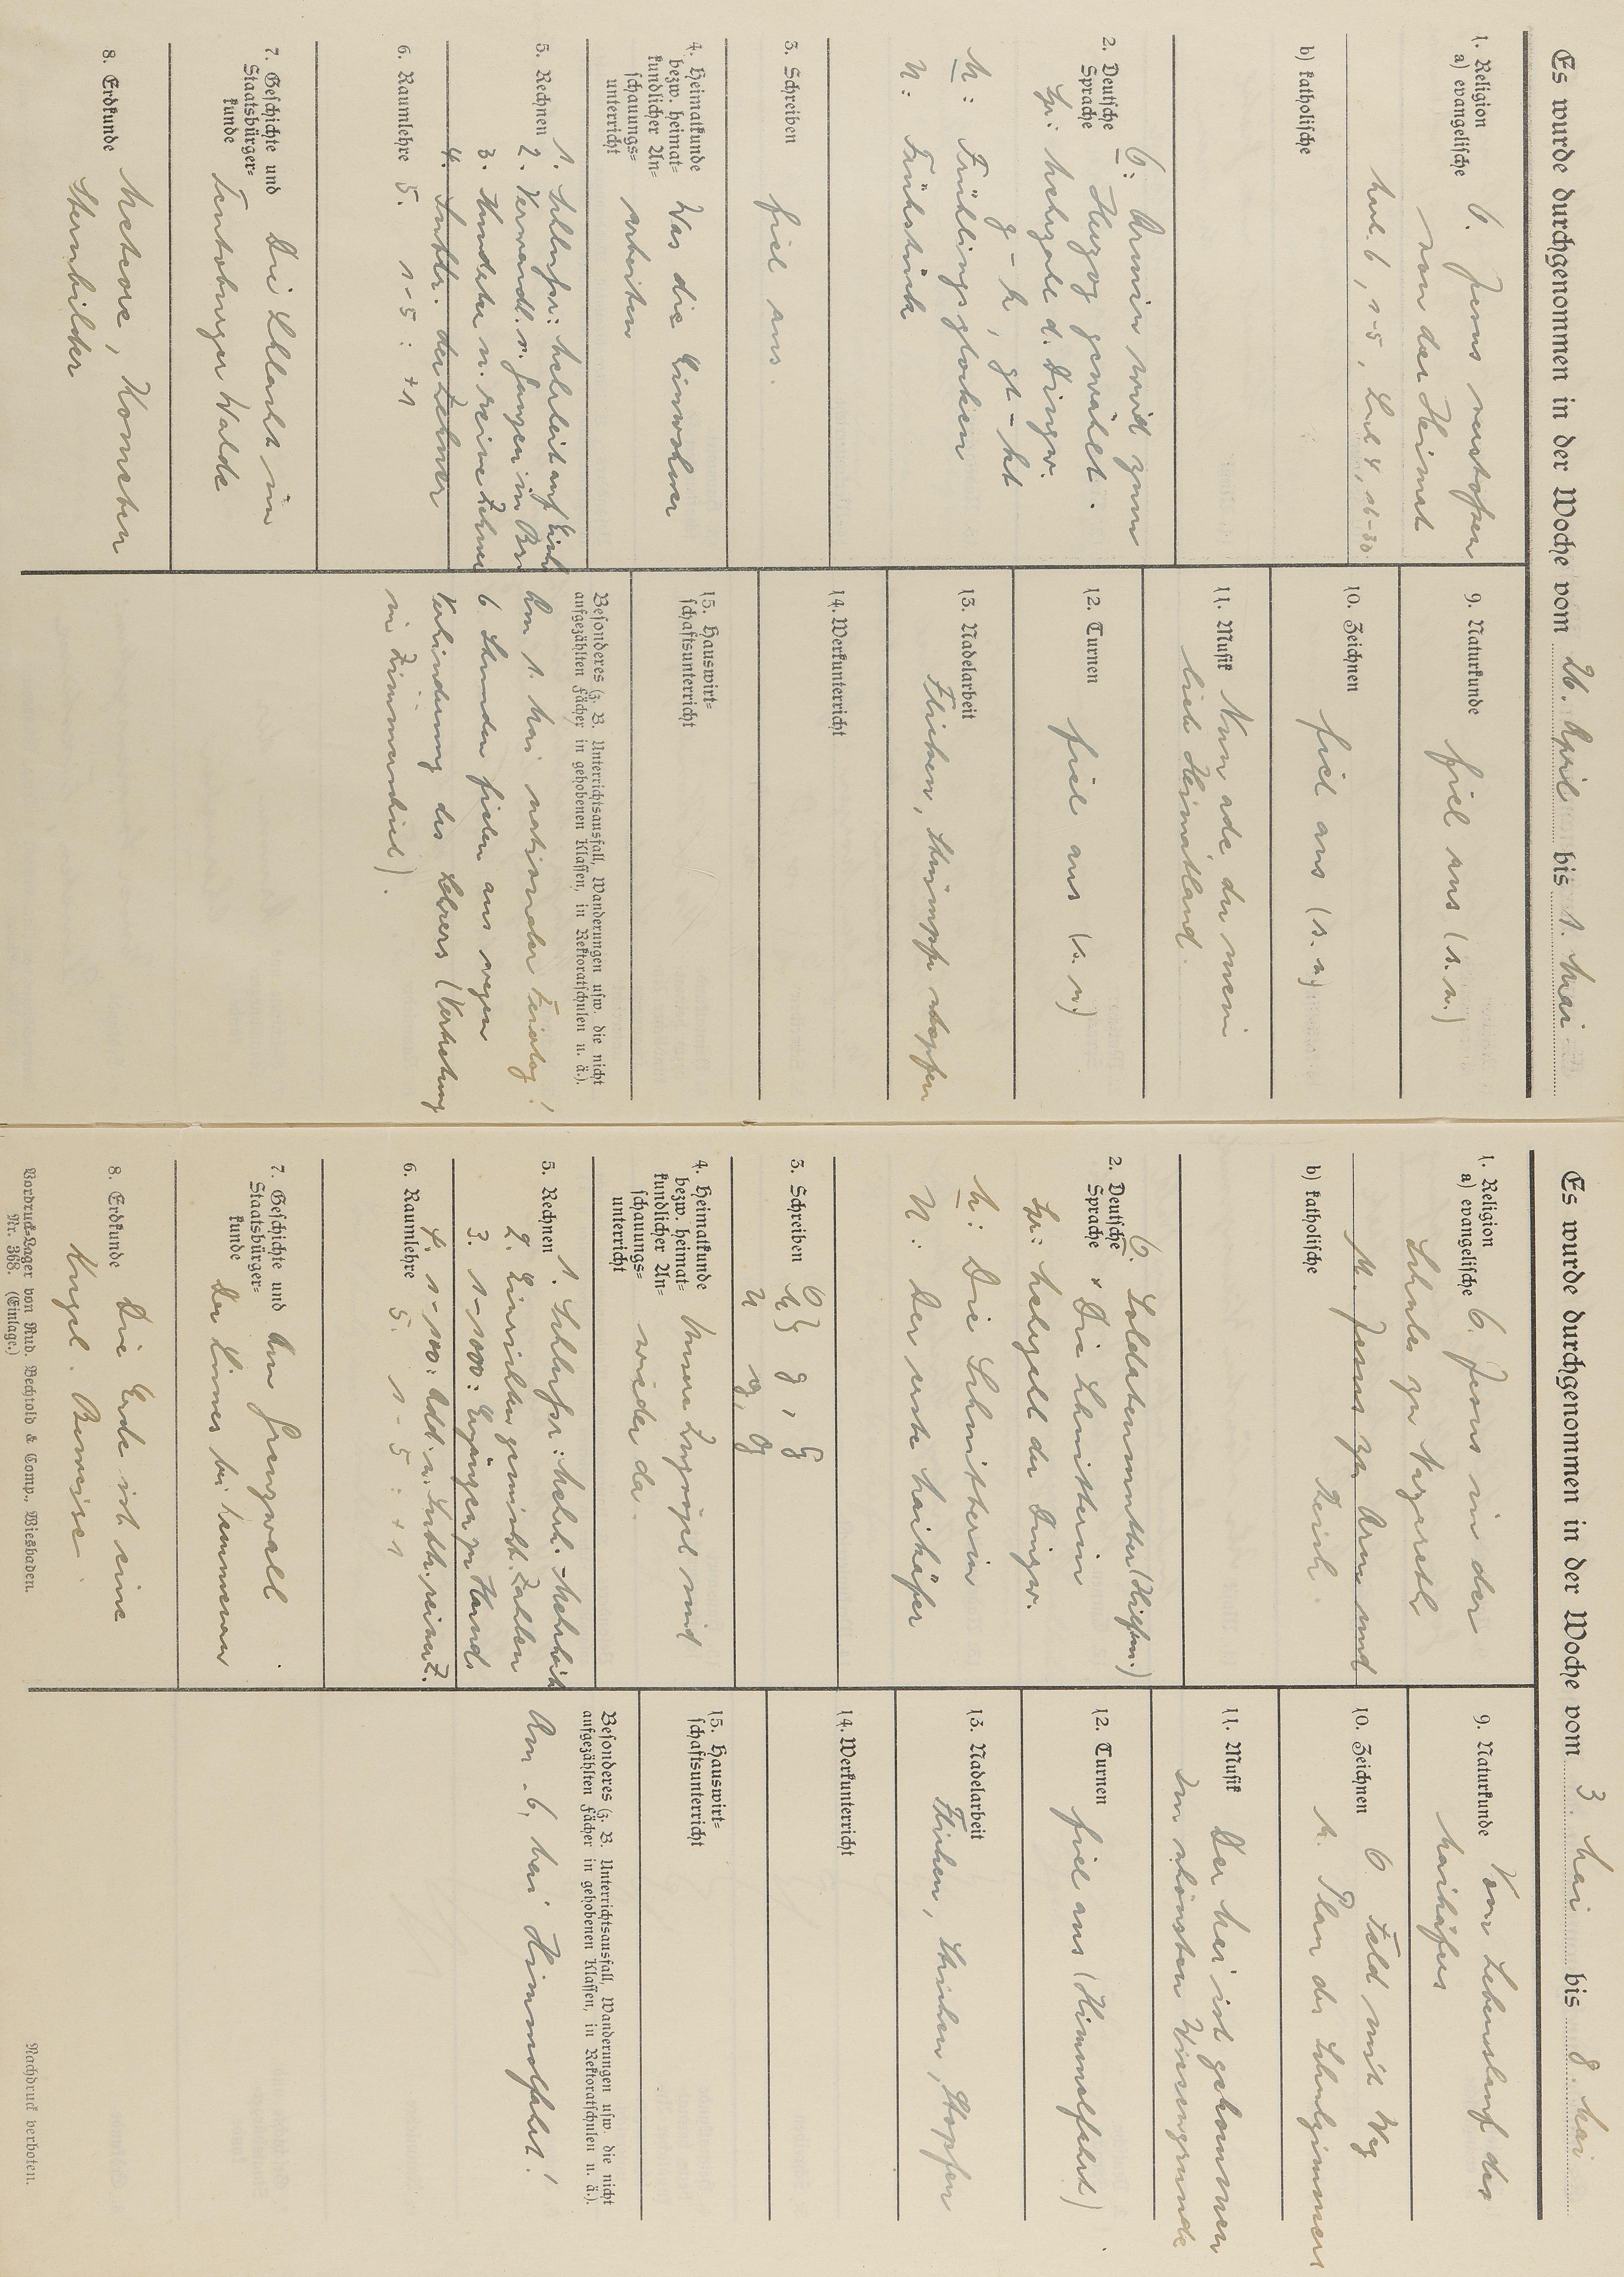 Es wurde durchgenommen in der Woche vom 26. April bis 1. Mai
1. Religion
a) evangelische
O. Jesus verstoßen
von der Heimat
Mal. 6, 1-5, Luk 4, 16-30
b) katholische
2. Deutsche
Sprache
O: Armin wird zum
Herzog gewählt.
Spr: Mehrzahl d. Dingw.
g - k, gt - kt
M: Frühlingsglocken
U: Frühstück
3. Schreiben
fiel aus.
4. Heimatkunde
bezw. heimat-
kundlicher An-
schauungs-
unterricht
Was die Einwohner
arbeiten
5. Rechnen
1. Schlußr: Mehrheit auf Einh
2. Verwandl. v. Ganzen in Br
3. Hunderter u. reine Zehner
4. Subtr. der Zehner
5. 1-5: +1
6. Raumlehre
7. Geschichte und
Staatsbürger-
kunde
Die Schlacht im
Teutoburger Walde
8. Erdkunde
Meteore, Kometen
Sternbilder
9. Naturkunde
fiel aus (s. u.)
10. Zeichnen
fiel aus (s. u.)
11. Musik
Nun ade, du mein
lieb Heimatland.
12. Turnen
fiel aus (s. u.)
13. Nadelarbeit
Flicken, Strümpfe stopfen
14. Werkunterricht
15. Hauswirt-
schaftsunterricht
Besonderes (z. B. Unterrichtsausfall, Wanderungen usw. die nicht
aufgezählten Fächer in gehobenen Klassen, in Rektoratschulen u. ä.).
Am 1. Mai nationaler Feiertag!
6 Stunden fielen aus wegen
Verhinderung des Lehrers (Vertretung
in Zimmerschied).
Es wurde durchgenommen in der Woche vom 3. Mai bis 8. Mai
1. Religion
a) evangelische
O. Jesus in der
Schule zu Nazareth
M. Jesus für Arm und
Reich.
b) katholische
2. Deutsche
Sprache
O. Soldatenmutter
Die Schnitterin
Spr: Mehrzahl der Dingw.
M: Die Schnitterin
U: Der erste Maikäfer
3. Schreiben
O
M } g, G
U g, G
4. Heimatkunde
bezw. heimat-
kundlicher An-
schauungs-
unterricht
Unsere Zugvögel sind
wieder da.
5. Rechnen
1. Schlußr: Mehrh. - Mehrheit
2. Einrichten gemischt. Zahlen
3. 1-1000: Ergänzen zu Hund.
4. 1-100: Add. u. Subtr. reiner Z.
5. 1-5: +1
6. Raumlehre
7. Geschichte und
Staatsbürger-
kunde
Am Grenzwall.
Der Limes bei Kemmenau
8. Erdkunde
Die Erde ist eine
Kugel. Beweise.
9. Naturkunde
Vom Lebenslauf des
Maikäfers
10. Zeichnen
O Feld mit Weg
M. Plan des Schulzimmers
11. Musik
Der Mai ist gekommen
Im schönsten Wiesengrunde
12. Turnen
fiel aus (Himmelfahrt)
13. Nadelarbeit
Flicken, Stricken, Stopfen
14. Werkunterricht
15. Hauswirt-
schaftsunterricht
Besonderes (z. B. Unterrichtsausfall, Wanderungen usw. die nicht
aufgezählten Fächer in gehobenen Klassen, in Rektoratschulen u. ä.).
Am 6. Mai Himmelfahrt!
Vordruck-Lager von Rud. Bechtold & Comp., Wiesbaden.
Nr. 368. (Einlage.)
Nachdruck verboten.